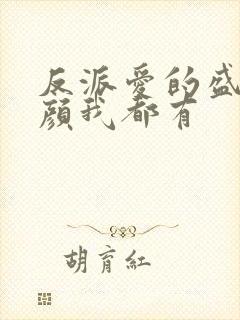 反派爱的盛
颜我都有
胡育红